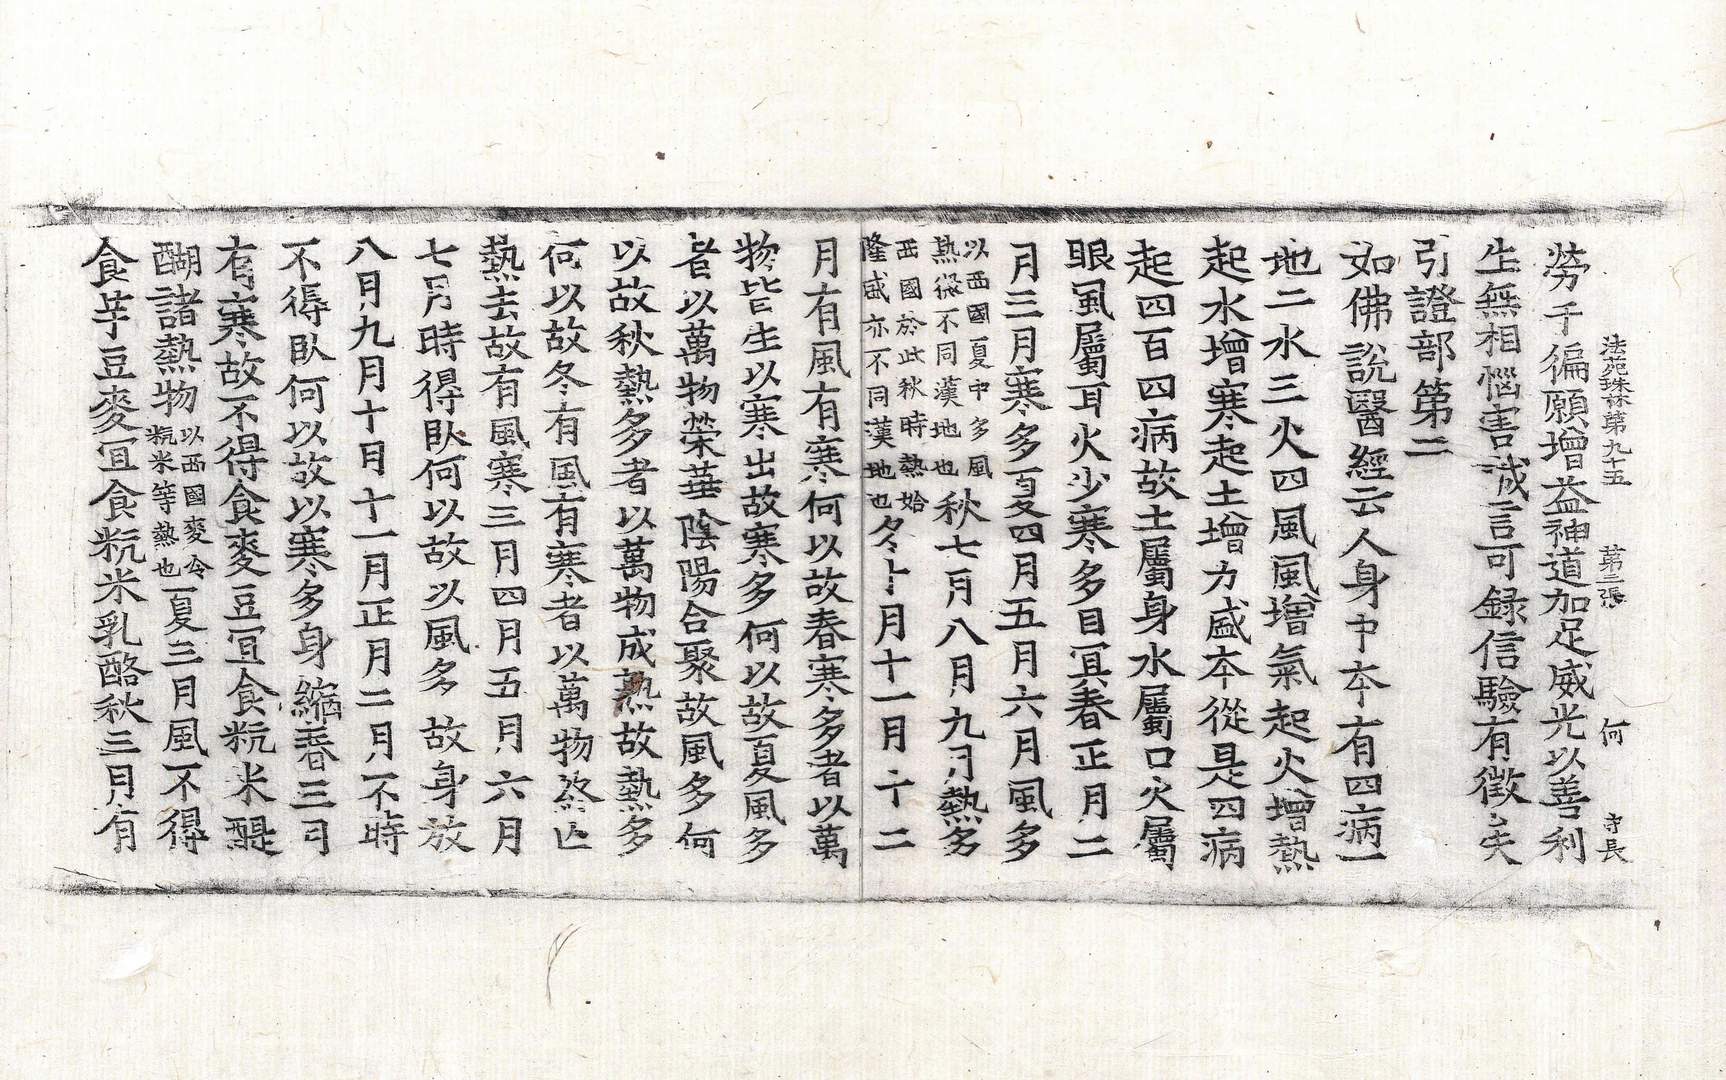 法苑珠林第九十五 第三張 何 寺長
勞千徧願增益神道加足威光以善利
生無相惱害誠言可錄信驗有徵矣
引證部第二
如佛說醫經云人身中本有四病一
地二水三火四風風增氣起火增熱
起水增寒起土增力盛本從是四病
起四百四病故土屬身水屬口火屬
眼風屬耳火少寒多目冥春正月二
月三月寒多夏四月五月六月風多
以西國夏中多風
熱微不同漢地也
秋七月八月九月熱多
西國於此秋時熱始
隆盛亦不同漢地也
冬十月十一月十二
月有風有寒何以故春寒多者以萬
物皆生以寒出故寒多何以故夏風多
者以萬物榮華陰陽合聚故風多何
以故秋熱多者以萬物成熟故熱多
何以故冬有風有寒者以萬物終亡
熱去故有風寒三月四月五月六月
七月時得臥何以故以風多故身放
八月九月十月十一月正月二月不時
不得臥何以故以寒多身縮春三月
有寒故不得食麥豆宜食粇米醍
醐諸熱物
以西國麥冷
粇米等熱也
夏三月風不得
食芋豆麥宜食粇米乳酪秋三月有